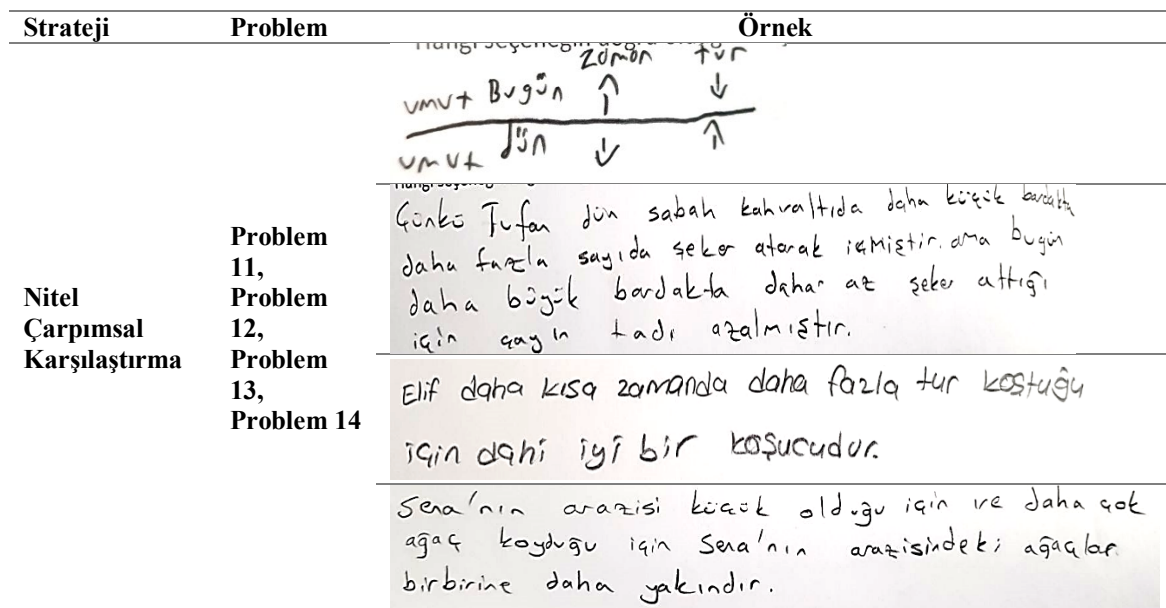 Strateji Problem Örnek
Nitel
Çarpımsal
Karşılaştırma
Problem
11,
Problem
12,
Problem
13,
Problem 14
zaman tur
umut Bugün ↑ ↓
umut dün ↓ ↑
Çünkü Tufan dün sabah kahvaltıda daha küçük bardakta
daha fazla sayıda şeker atarak içmiştir. ama bugün
daha büyük bardakta daha az şeker attığı
için çayın tadı azalmıştır.
Elif daha kısa zamanda daha fazla tur koştuğu
için dahi iyi bir koşucudur.
Sena'nın arazisi küçük olduğu için ve daha çok
ağaç koyduğu için Sena'nın arazisindeki ağaçlar
birbirine daha yakındır.